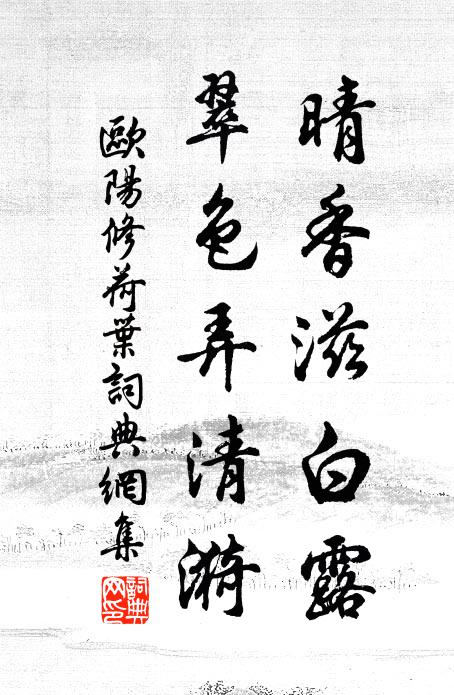 晴香滋白露
翠色弄清漪
歐陽修荷葉詞典網集
詞典
网印